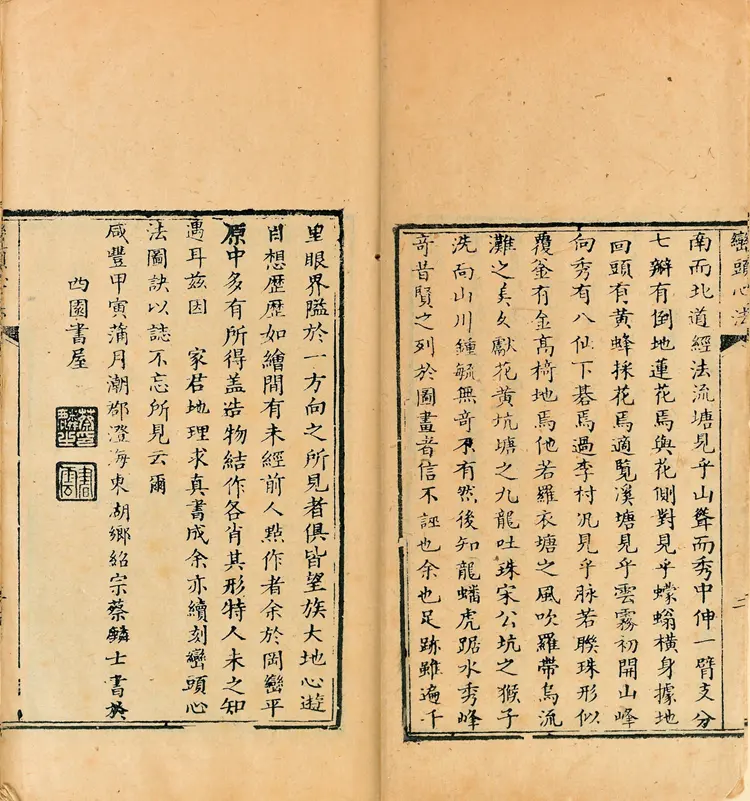 巒頭心法
南而北道經法流塘見乎山聳而秀中伸一臂支分
七瓣有倒地蓮花焉與花側對見乎蠓螉橫身據地
回頭有黃蜂採花焉適覽溪塘見乎雲霧初開山峰
向秀有八仙下碁焉過李村汎見乎脉若聯珠形似
覆釜有金高椅地焉他若羅衣塘之風吹羅帶烏流
灘之美女獻花黃坑塘之九龍吐珠宋公坑之猴子
洗面山川鍾毓無奇不有然後知龍蟠虎踞水秀峰
奇昔賢之列於圖畫者信不誣也余也足跡雖遍千
里眼界隘於一方向之所見者俱皆望族大地心遊
目想歷歷如繪間有未經前人㸃作者余於岡巒平
原中多有所得盖造物結作各肖其形特人未之知
遇耳兹因 家君地理求真書成余亦續刻巒頭心
法圖訣以誌不忘所見云爾
咸豐甲寅蒲月潮郡澄海東湖鄉紹宗蔡麟士書於
西園書屋